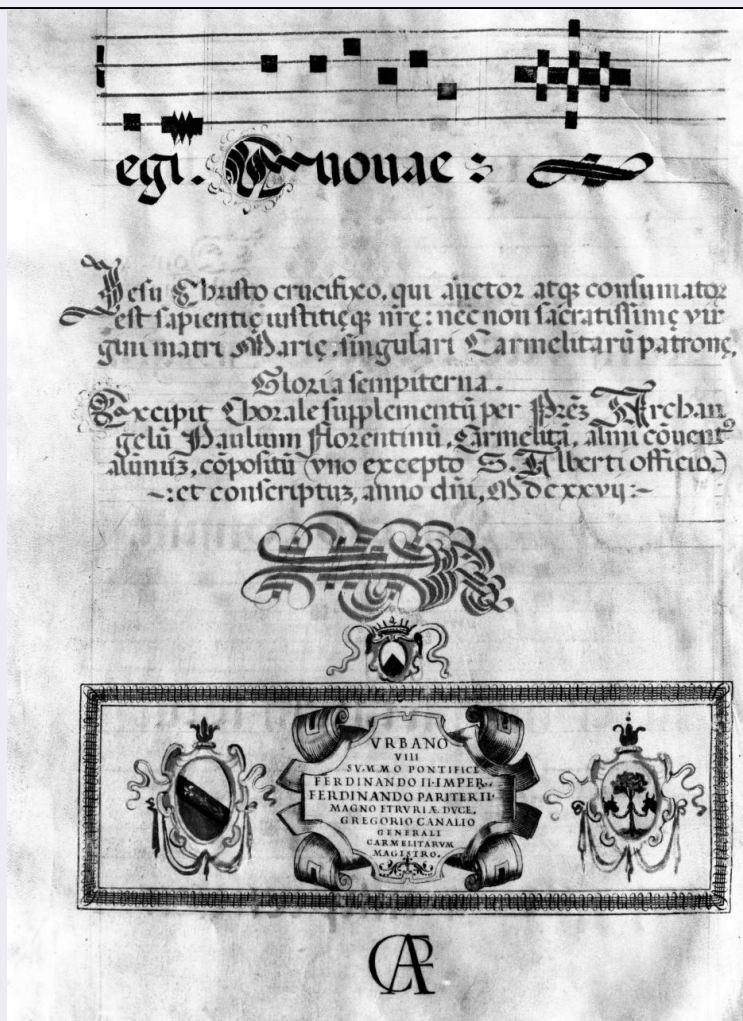 egi. Euouae :
Jesu Christo crucifixo, qui auctor atq₃ consumator
est sapientię iustitięq₃ nr̃ę : nec non sacratissimę vir
gini matri Marię, singulari Carmelitarũ patronę,
Gloria sempiterna .
Excipit Chorale supplementũ per Fręz Archan
gelũ Paulium florentinũ, Carmelitã, almi cõvent⁹
alũnuz, cõpositũ (vno excepto S. Alberti officio.)
~: et conscriptuz, anno dñi, MDcxxvij :~
VRBANO
VIII
SVMMO PONTIFICE
FERDINANDO II·IMPER.
FERDINANDO PARITER II·
MAGNO ETRVRIÆ DVCE,
GREGORIO CANALIO
GENERALI
CARMELITARVM
MAGISTRO.